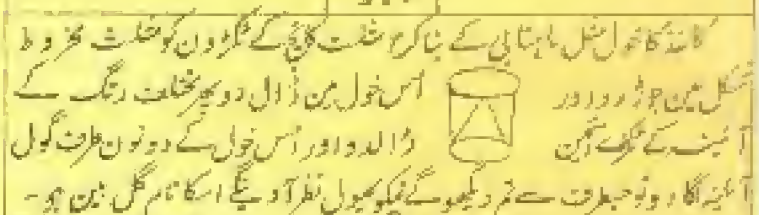 کاغذ کا خول مثل ماہتابی کے بنا کر مثلث کانچ کے ٹکڑون کو مثلث مخروط
شکل مین جوڑ دو اور اس خول مین ڈال دو پھر مختلف رنگ کے
آئینہ کے ٹکڑے ڈالدو اور اس خول کے دونون طرف گول
آئینہ لگا دو توجس طرف سے تم دیکھوگے تمکو پھول نظر آوینگے اسکا نام گل بین ہو۔